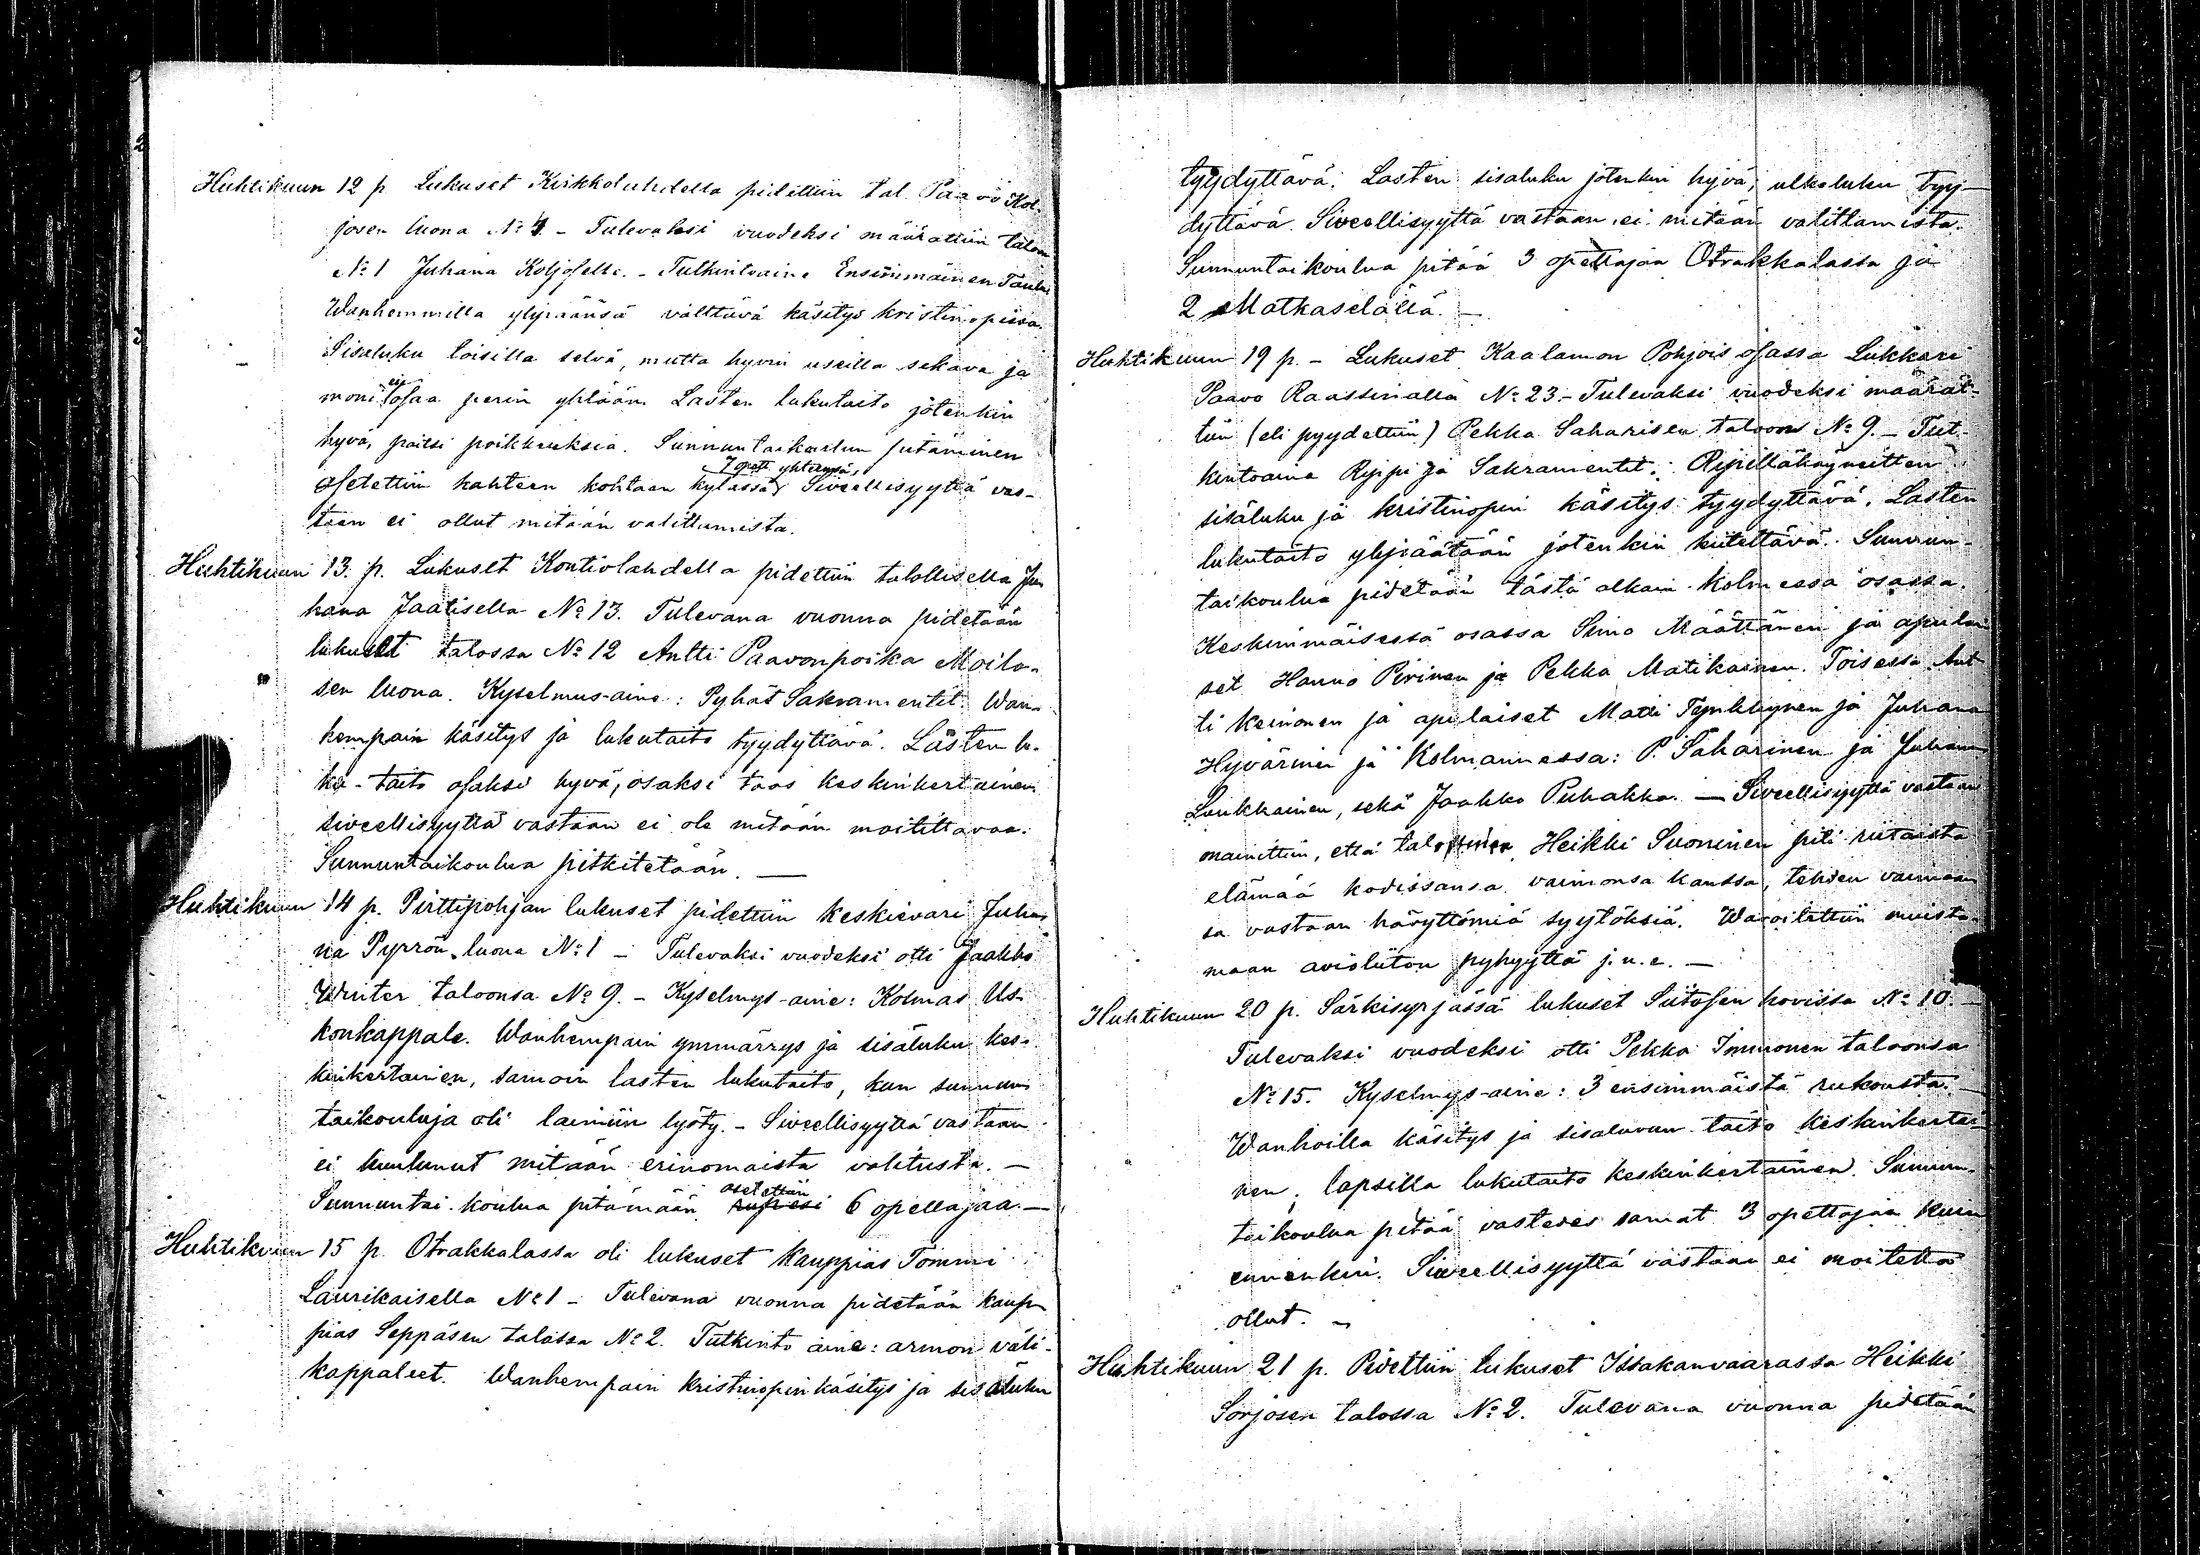 Huhtikuun 12 p. Lukuset Kirkkolahdella pidettiin tal. Paavo Kol-
josen luona No 4 - Tulevaksi vuodeksi määrättiin talon
No 1 Juhana Koljoselle. - Tutkintoaine Ensimmäinen Taulu
Wanhemmilla ylipäänsä välttävä käsitys kristinopissa.
Sisäluku toisilla selvä, mutta hyvin useilla sekava ja
moni ei osaa perin yhtään. Lasten lukutaito jotenkin
hyvä, paitsi poikkeuksia. Sunnuntaikoulun pitäminen
asetettiin kahteen kohtaan kylässä, 7 opett. yhteensä. Siveellisyyttä vas-
taan ei ollut mitään valittamista.
Huhtikuun 13. p. Lukuset Kontiolahdella pidettiin talollisella Ju-
hana Jaatisella No 13. Tulevana vuonna pidetään
lukuset talossa No 12 Antti Paavonpoika Moilo-
sen luona. Kyselmus-aine: Pyhät Sakramentit. Wan-
hempain käsitys ja lukutaito tyydyttävä. Lasten lu-
ku-taito osaksi hyvä, osaksi taas keskinkertainen.
siveellisyyttä vastaan ei ole mitään moitittavaa.
Sunnuntaikoulua pitkitetään. —
Huhtikuun 14 p. Pirttipohjan lukuset pidettiin keskievari Juha-
na Pyrrön luona No 1 - Tulevaksi vuodeksi otti Jaakko
Winter taloonsa No 9. - Kyselmys-aine: Kolmas Us-
konkappale. Wanhempain ymmärrys ja sisäluku kes-
kinkertainen, samoin lasten lukutaito, kun sunnun-
taikouluja oli laimiin lyöty. - Siveellisyyttä vastaan
ei kuulunut mitään erinomaista valitusta. —
Sunnuntai-koulua pitämään asetettiin 6 opettajaa. —
Huhtikuun 15 p. Otrakkalassa oli lukuset Kauppias Tommi
Laurikaisella No 1 - Tulevana vuonna pidetään kaup-
pias Seppäsen talossa No 2. Tutkinto aine: armon väli-
kappaleet. Wanhempain kristinopin käsitys ja sisäluku
tyydyttävä. Lasten sisäluku jotenkin hyvä, ulkoluku tyy-
dyttävä. Siveellisyyttä vastaan ei mitään valittamista.
Sunnuntaikoulua pitää 3 opettajaa Otrakkalassa ja
2 Matkaselällä. —
Huhtikuun 19 p. - Lukuset Kaalamon Pohjois osassa Lukkari
Paavo Raassinalla No 23. - Tulevaksi vuodeksi määrät-
tiin (eli pyydettiin) Pekka Saharisen taloon No 9. - Tut-
kintoaine Rippi ja Sakramentit. Ripilläkäyneitten
sisäluku ja kristinopin käsitys tyydyttävä. Lasten
lukutaito ylipäätään jotenkin kiitettävä. Sunnun-
taikoulua pidetään tästä alkain kolmessa osassa.
Keskimmäisessä osassa Simo Määttänen ja apulai-
set Hannu Pirinen ja Pekka Matikainen. Toisessa Ant-
ti Keinonen ja apulaiset Matti Tynkkynen ja Juhana
Hyvärinen ja Kolmannessa: P. Saharinen ja Juhana
Laukkainen, sekä Jaakko Puhakka. — Siveellisyyttä vastaan
mainittiin, että talollinen Heikki Suoninen piti riitaista
elämää kodissansa vaimonsa kanssa, tehden vaimoan-
sa vastaan hävyttömiä syytöksiä. Waroitettiin muista-
maan avioliiton pyhyyttä j.n.e. —
Huhtikuun 20 p. Särkisyrjässä lukuset Siitosen hovissa No 10. —
Tulevaksi vuodeksi otti Pekka Immonen taloonsa
No 15. Kyselmys-aine: 3 ensimmäistä rukousta. —
Wanhoilla käsitys ja sisäluvun taito keskinkertai-
nen, lapsilla lukutaito keskinkertainen. Sunnun-
taikoulua pitää vastedes samat 3 opettajaa kuin
ennenkin. Siveellisyyttä vastaan ei moitetta
ollut. —
Huhtikuun 21 p. Pidettiin lukuset Issakanvaarassa Heikki
Sorjosen talossa No 2. Tulevana vuonna pidetään